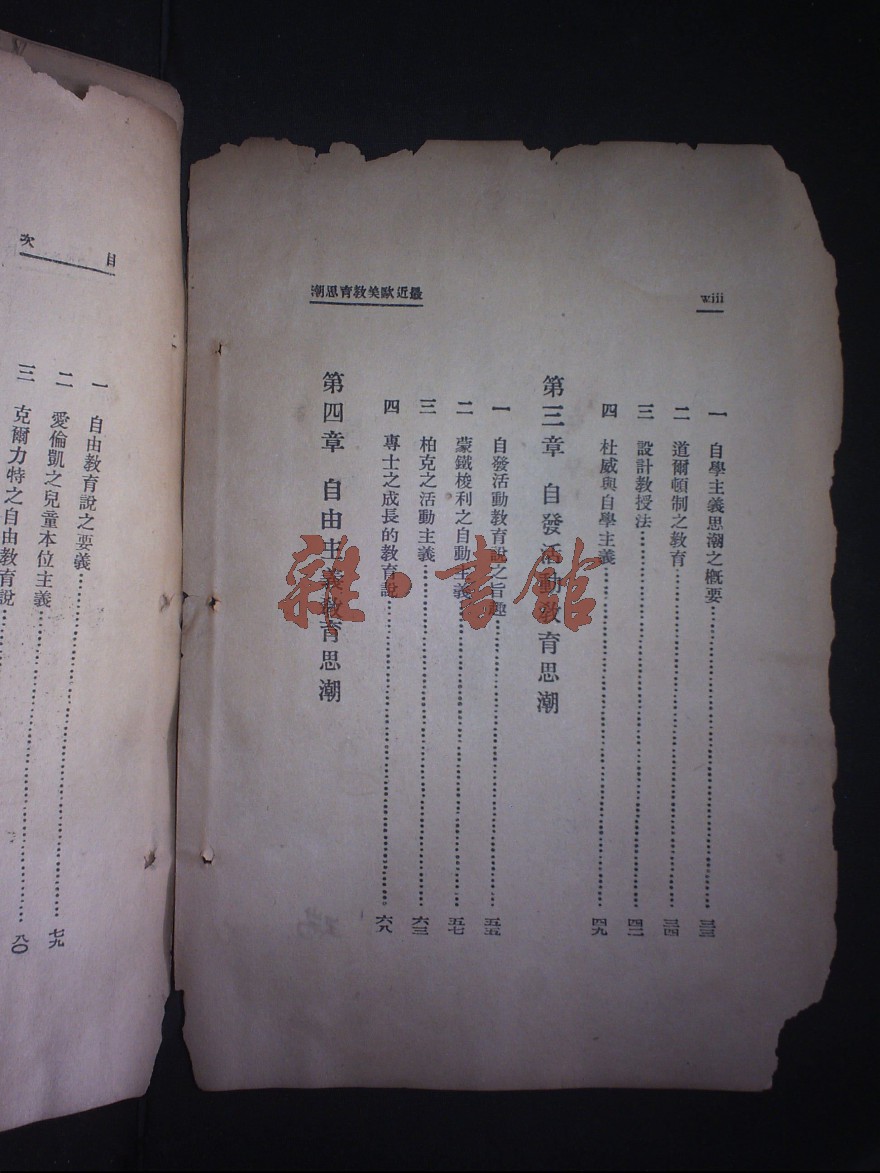 viii
最近歐美教育思潮
一 自學主義思潮之概要 三三
二 道爾頓制之教育 三四
三 設計教授法 四二
四 杜威與自學主義 四九
第三章 自發活動教育思潮
一 自發活動教育說之旨趣 五五
二 蒙鐵梭利之自動主義 五七
三 柏克之活動主義 六三
四 專士之成長的教育說 六八
第四章 自由主義教育思潮
目次
一 自由教育說之要義
二 愛倫凱之兒童本位主義 七九
三 克爾力特之自由教育說 八〇
雜·書館